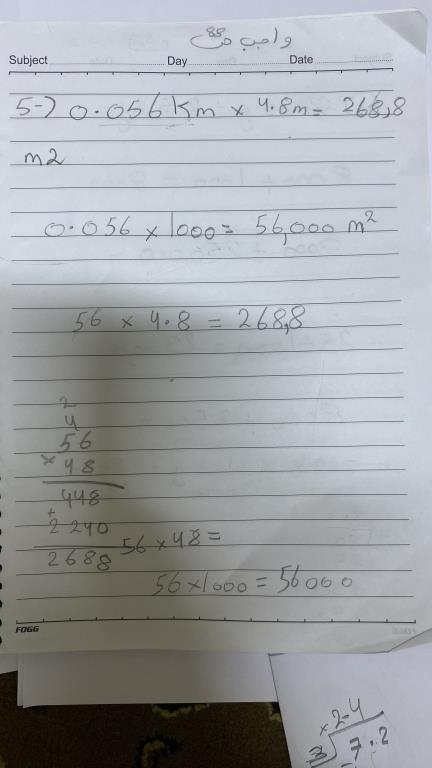 واجب ص 88
Subject Day Date
5-) 0.056 Km × 4.8m = 268,8
m2
0.056 × 1000 = 56,000 m²
56 × 4.8 = 268,8
2
4
56
× 48
448
+
2240
2688 56 × 48 =
56 × 1000 = 56000
FOGG
× 2-4
3 7.2